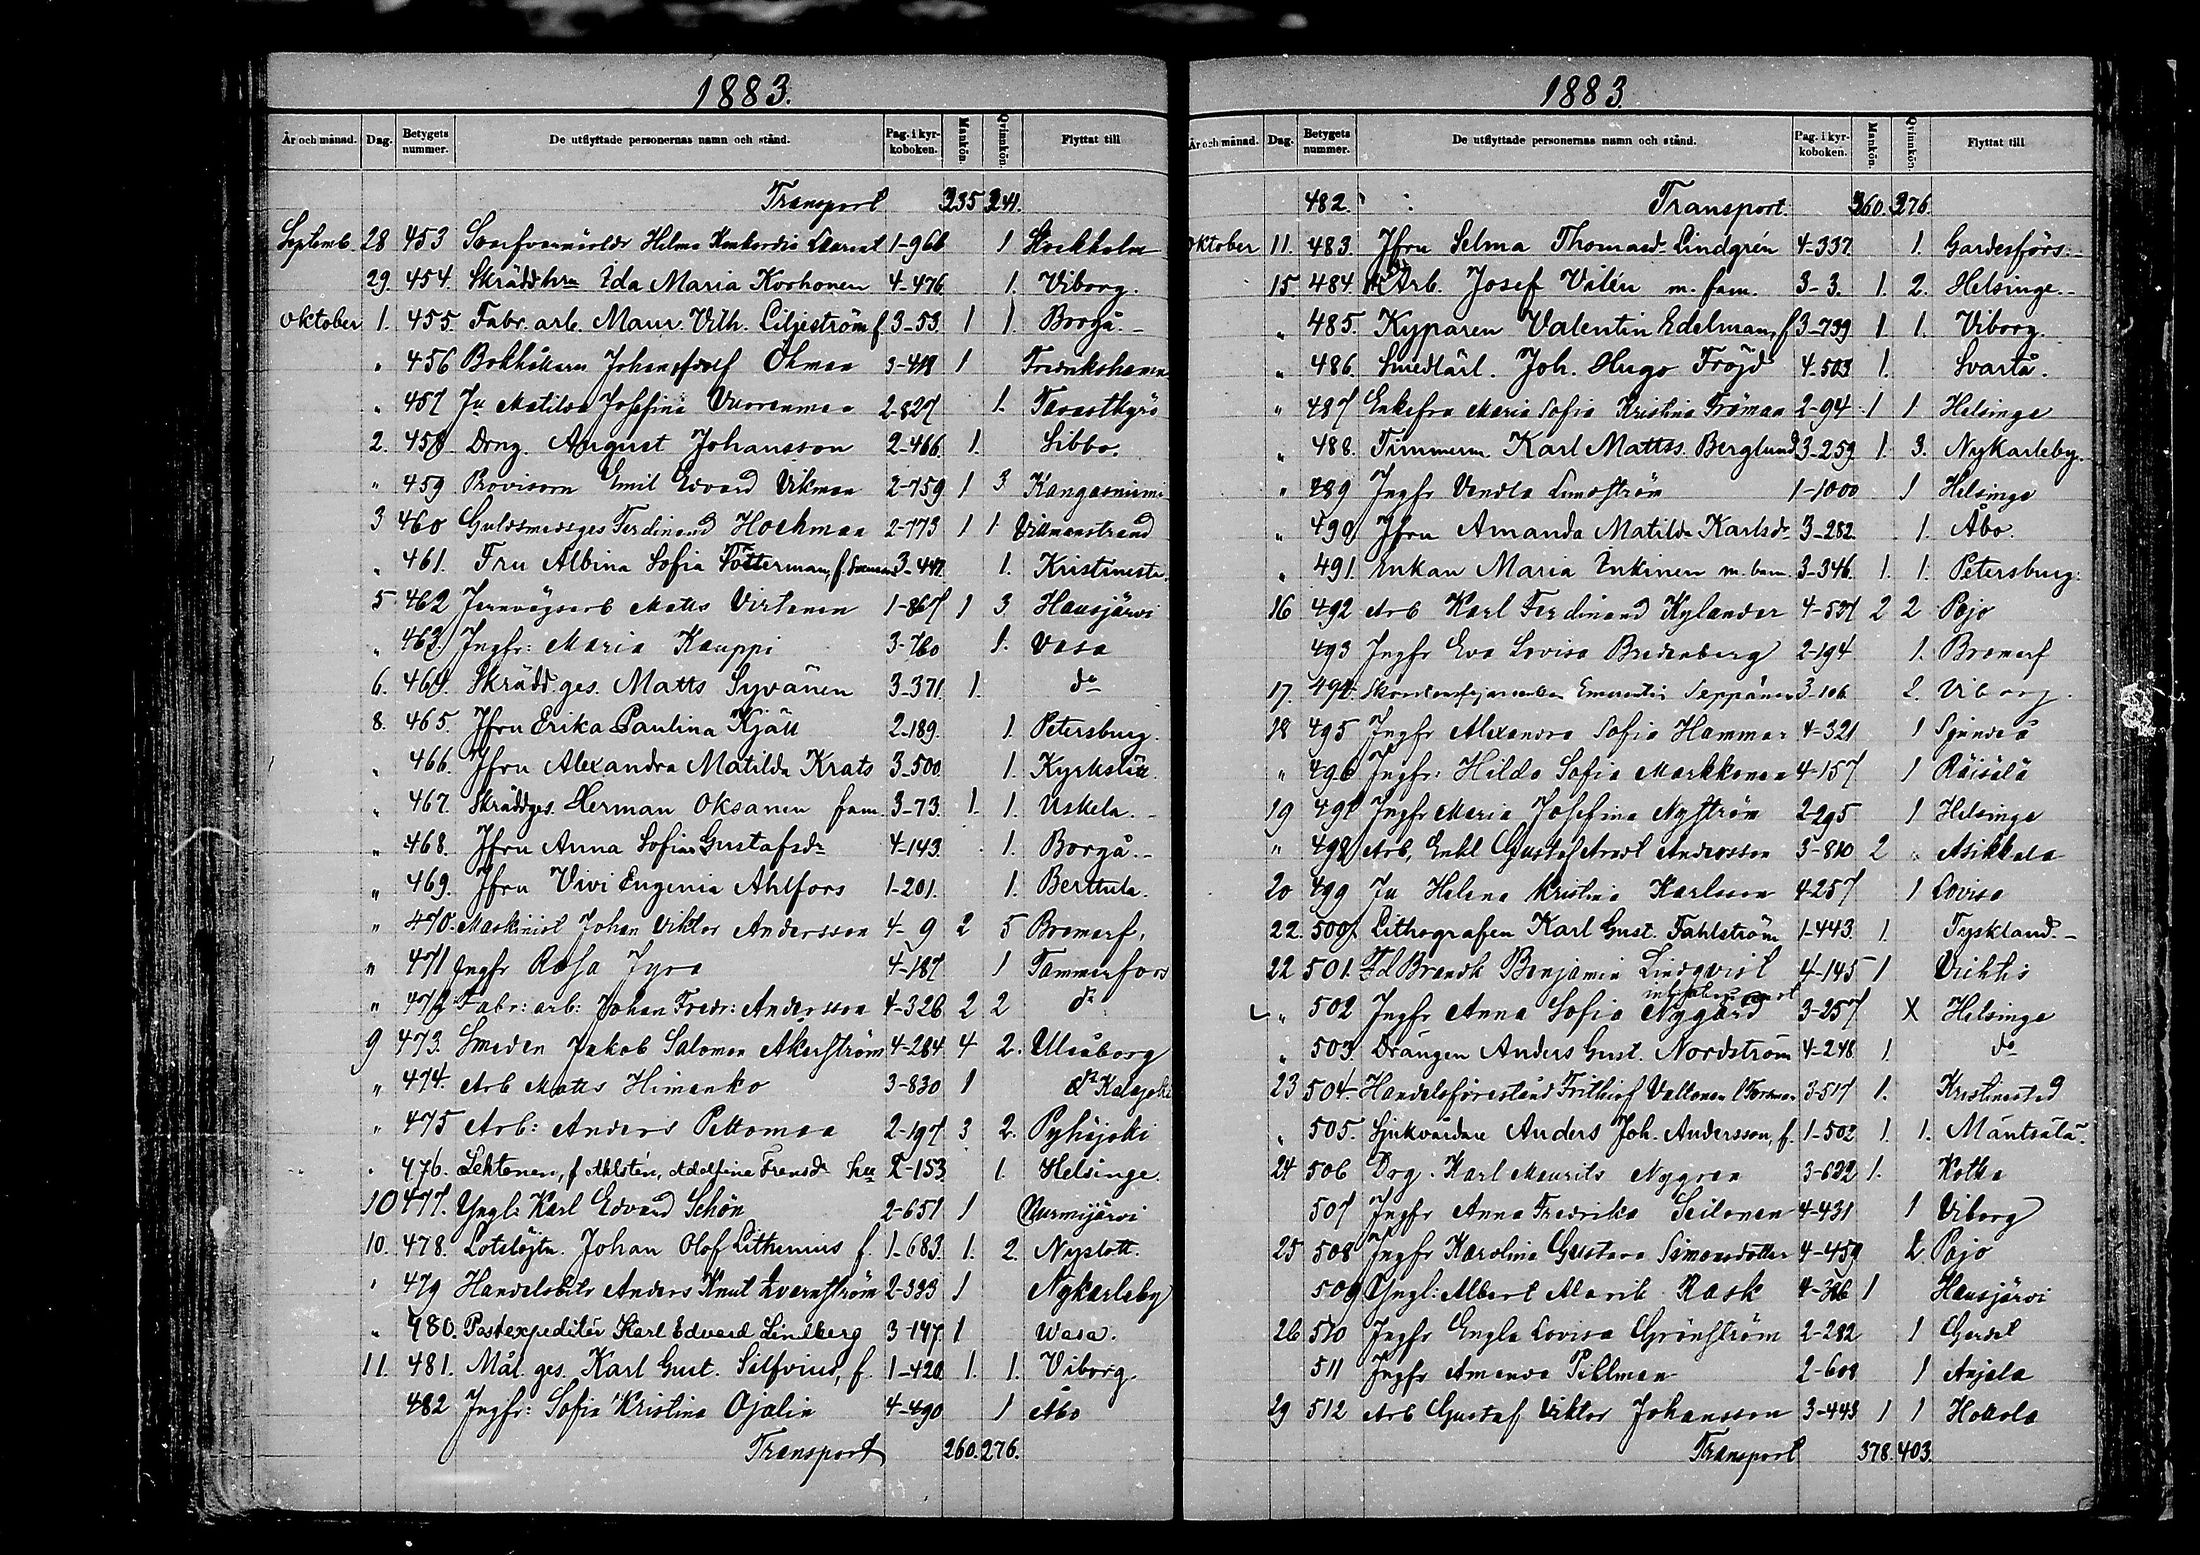 1883.
År och månad. Dag. Betygets nummer. De utflyttade personernas namn och stånd. Pag. i kyrkoboken. Mankön. Qvinnkön. Flyttat till
Transport 335 341.
Septemb. 28 453 Helma 1-966 1 Stockholm
29. 454. Skräddhru Ida Maria Korhonen 4-476 1. Viborg.
Oktober 1. 455. Fabr. arb. Maur. Vilh. Liljeström f 3-53. 1 1. Borgå.
" 456 Bokhållaren Johan Öhman 3-418 1 Fredrikshamn
" 457 Ja Matilda Josefina Vuorenmaa 2-827 1. Tavastkyrö
2. 458. Dräng. August Johansson 2-466. 1. Sibbo.
" 459 Provisorn Emil Edvard Vikman 2-759 1 3 Kangasniemi
3 460 Guldsmedsges Ferdinand Hochman 2-773 1 1. Villmanstrand
" 461. Fru Albina Sofia Totterman, f. 3-447. 1. Kristinesta.
5 462 Jernvägsarb Matts Virtanen 1-867 1 3 Hausjärvi
" 463. Jngfr: Maria Kauppi 3-760 1. Vasa
6. 464. Skrädd. ges. Matts Syvänen 3-371. 1. do
8. 465. Jfru Erika Paulina Kjäll 2-189. 1. Petersburg.
" 466. Jfru Alexandra Matilda Krats 3-500. 1. Kyrkslätt.
" 467. Skräddges. Herman Oksanen fam. 3-73. 1. 1. Uskela.
" 468. Jfru Anna Sofia Gustafsdr 4-143. 1. Borgå.
" 469. Jfru Vivi Eugenia Ahlfors 1-201. 1. Berttula.
" 470. Maskinist Johan Viktor Andersson 4-9 2 5 Bromarf.
" 471 Jngfr Rosa Jyra 4-187 1 Tammerfors
" 472 Fabr: arb: Johan Fredr: Andersson 4-326 2 2 do
9 473. Smeden Jakob Salomon Åkerström 4-284 4 2. Uleåborg
" 474. Arb Matts Himanko 3-830 1 Kalajoki
" 475 Arb: Anders Peltomaa 2-197 3 2. Pyhäjoki
" 476. Lehtonen, f. Ahlstén, Adolfina Fransdr hu 2-153 1. Helsinge.
10 477. Yngl: Karl Edvard Schön 2-651 1 Nurmijärvi
10. 478. Lotslöjtn. Johan Olof Lithenius f. 1-683. 1. 2. Nyslott.
" 479 Handelsbitr Anders Knut Kvarnström 2-393 1 Nykarleby
" 480. Postexpeditör Karl Edvard Lindberg 3-147. 1 Wasa.
11. 481. Mål. ges. Karl Gust. Silfvius, f. 1-420 1. 1. Viborg.
482 Jngfr: Sofia Kristina Ojalin 4-490 1 Åbo
Transport 260. 276.
1883.
År och månad. Dag. Betygets nummer. De utflyttade personernas namn och stånd. Pag. i kyrkoboken. Mankön. Qvinnkön. Flyttat till
482. Transport. 360. 376
Oktober 11. 483. Jfru Selma Thomasd. Lindgrén 4-337. 1. Gardesförs.
15. 484. Arb. Josef Vilén m. fam. 3-3. 1. 2. Helsinge.
" 485. Kyparen Valentin Edelman, f 3-739 1 1. Viborg.
" 486. Smedlärl. Joh. Hugo Fröjd 4-503 1. Svartå.
" 487 Enkefru Maria Sofia Kristina Fröman 2-94 1 1 Helsinge
" 488. Timmerm. Karl Mattss. Berglund 3-259. 1. 3. Nykarleby.
" 489 Jngfr Vendla Lindström 1-1000 1 Helsinge
" 490 Jfru Amanda Matilda Karlsdr 3-282. 1. Åbo.
" 491. Enkan Maria Inkinen m. barn. 3-346. 1. 1. Petersburg.
16 492 Arb Karl Ferdinand Kylander 4-527 2 2 Pojo
493 Jngfr Eva Lovisa Bredenberg 2-194 1. Bromarf
17. 494. Emerentia Seppänen 3-106 2. Viborg.
18 495 Jngfr Alexandra Sofia Hammar 4-321 1 Sjundeå
" 496 Jngfr: Hilda Sofia Markkonen 4-157 1 Räisälä
19 497 Jngfr Maria Josefina Nyström 2-295 1 Helsinge
" 498 Arb, Enkl Gustaf Arvd Andersson 3-810 2 " Asikkala
20 499 Ja Helena Kristina Karlsson 4-257 1 Lovisa
22. 500. Lithografen Karl Gust. Fahlström 1-443. 1. Tyskland.
22 501. Fd Brandk Benjamin Lindqvist 4-145 1 Vichtis
" 502 Jngfr Anna Sofia Nygård 3-257 X Helsinge
" 503. Drängen Anders Gust. Nordström 4-248 1. do
23 504. Handelsförestånd Frithiof Valtonen l. Forsman 3-517 1. Kristinestad
" 505. Sjukvårdare Anders Joh. Andersson, f. 1-502 1. 1. Mäntsälä.
24 506 Drg. Karl Maurits Nygren 3-622 1. Kotka
507 Jngfr Anna Fredrika Seilonen 4-431 1 Viborg
25 508 Jngfr Karolina Gustava Simonsdotter 4-459 2. Pojo
509 Yngl: Albert Alarik Rask 4-326 1 Hausjärvi
26 510 Jngfr Engla Lovisa Grönström 2-282 1 Gersel
511 Jngfr Amanda Pihlman 2-608 1 Anjala
29 512 Arb Gustaf Viktor Johansson 3-443 1 1 Hollola
Transport 378. 403.